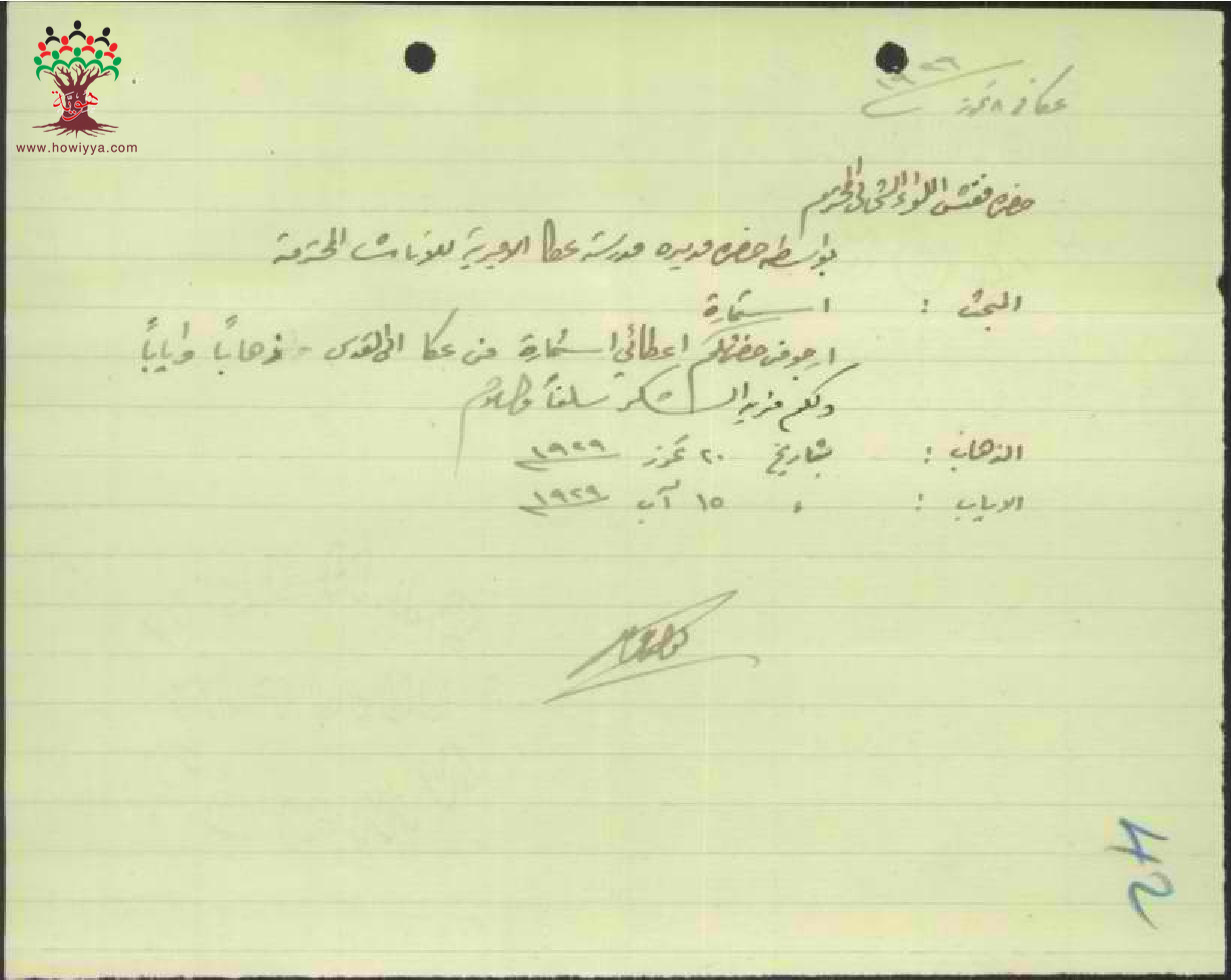 هوية
www.howiyya.com
عكا في ٨ تموز ١٩٢٩
حضرة مفتش اللواء الشمالي المحترم
بواسطة حضرة مديرة مدرسة عكا الاميرية للاناث المحترمة
البحث : استمارة
ارجو من حضرتكم اعطائي استمارة من عكا الى القدس - ذهاباً واياباً
ولكم مزيد الشكر سلفاً
الذهاب : بتاريخ ٢٠ تموز ١٩٢٩
الاياب : " ١٥ آب ١٩٢٩
42